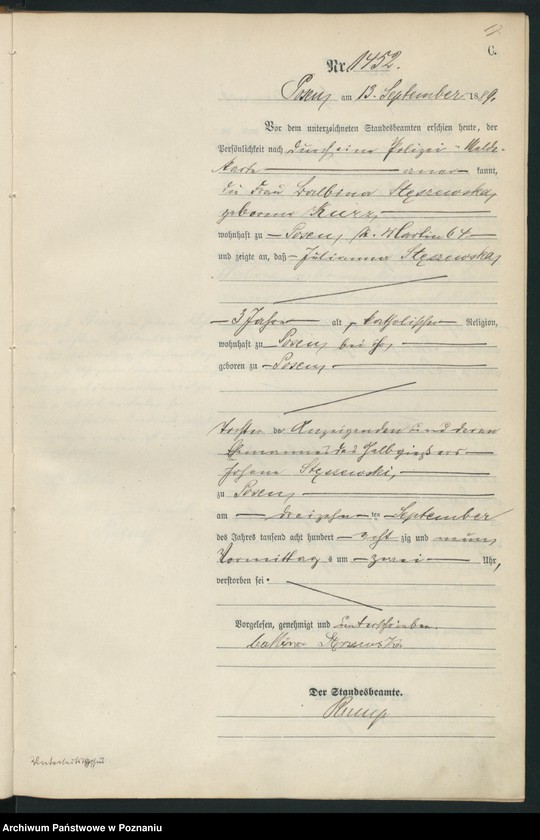 C.
Nr. 1452.
Posen, am 13. September 1889.
Vor dem unterzeichneten Standesbeamten erschien heute, der
Persönlichkeit nach durch eine Polizei-Melde-
karte aner kannt,
die Frau Balbina Stęszewska,
geborene Kurz,
wohnhaft zu Posen, St. Martin 64
und zeigte an, daß Julianna Stęszewska,
3 Jahre alt, katholischer Religion,
wohnhaft zu Posen, bei ihr,
geboren zu Posen,
Tochter der Anzeigenden und deren
Ehemannes des Gelbgießers
Johann Stęszewski,
zu Posen,
am dreizehn ten September
des Jahres tausend acht hundert acht zig und neun,
Vormittags um zwei Uhr,
verstorben sei.
Vorgelesen, genehmigt und unterschrieben.
Balbina
Der Standesbeamte.
Archiwum Państwowe w Poznaniu